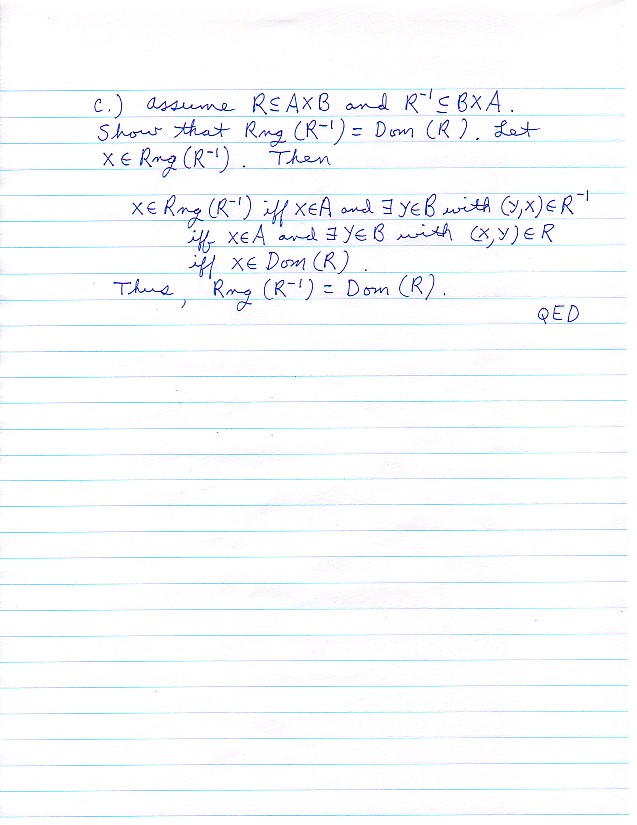 c.) assume R⊆A×B and R⁻¹⊆B×A.
Show that Rng (R⁻¹) = Dom (R). Let
x∈Rng(R⁻¹). Then
x∈Rng(R⁻¹) iff x∈A and ∃y∈B with (y,x)∈R⁻¹
iff x∈A and ∃y∈B with (x,y)∈R
iff x∈Dom(R).
Thus, Rng (R⁻¹) = Dom(R).
QED